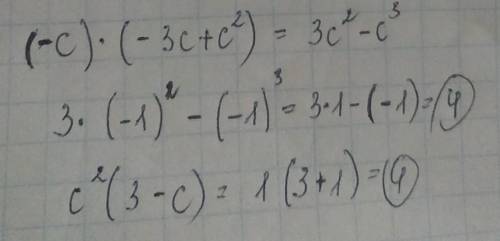 (-c)·(-3c+c²) = 3c²-c³
3·(-1)²-(-1)³=3·1-(-1)=4
c²(3-c)= 1(3+1)=4